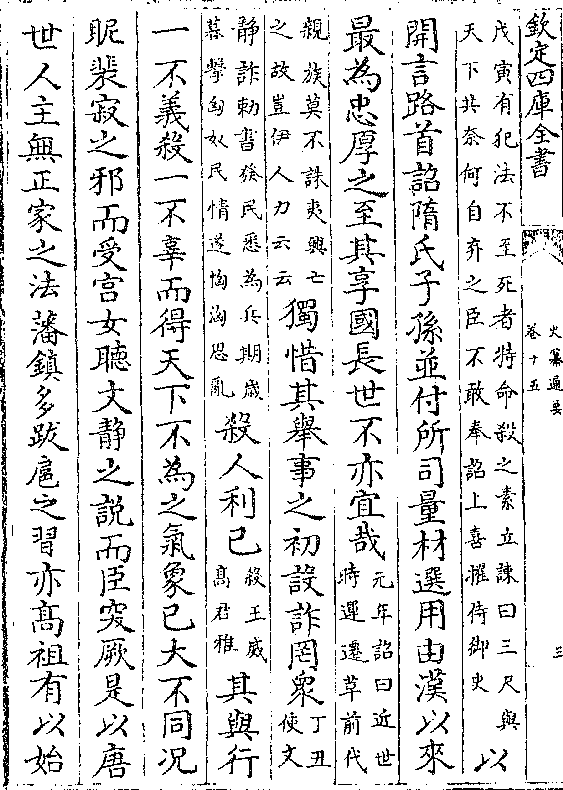 欽定四庫全書
史纂通要
卷十五
三
戊寅有犯法不至死者特命殺之素立諫曰三尺與
天下共奈何自弃之臣不敢奉詔上喜擢侍御史
以
開言路首詔隋氏子孫並付所司量材選用由漢以來
最為忠厚之至其享國長世不亦宜哉
元年詔曰近世
時運遷革前代
親族莫不誅夷興亡
之故豈伊人力云云
獨惜其舉事之初設詐罔衆
丁丑
使文
静詐勅書發民悉為兵期歲
暮擊匈奴民情遂恟恟思亂
殺人利己
殺王威
髙君雅
其與行
一不義殺一不辜而得天下不為之氣象已大不同况
昵裴寂之邪而受宫女聽文静之說而臣突厥是以唐
世人主無正家之法藩鎮多跋扈之習亦髙祖有以始